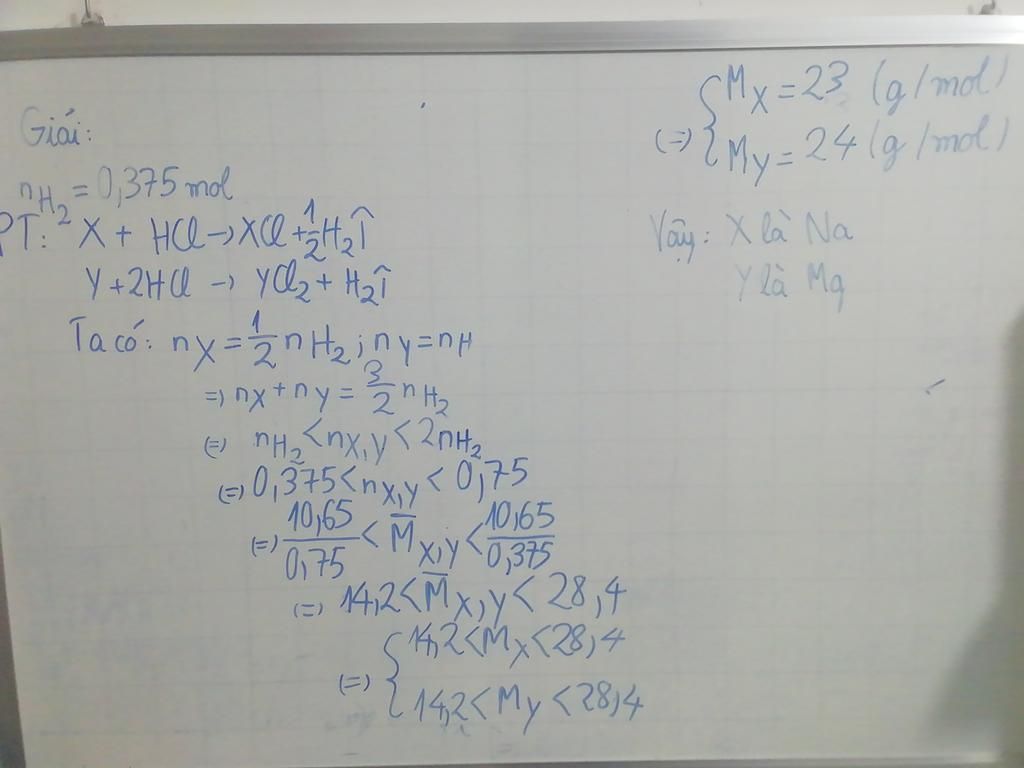 Giải:
nH₂ = 0,375 mol
PT: X + HCl → XCl + 1/2 H₂↑
Y + 2HCl → YCl₂ + H₂↑
Ta có: nX = 1/2 nH₂; nY = nH
=) nX + nY = 3/2 nH₂
(=) nH₂ < nX,Y < 2nH₂
(=) 0,375 < nX,Y < 0,75
(=) 10,65/0,75 < M̅X,Y < 10,65/0,375
(=) 14,2 < M̅X,Y < 28,4
(=) { 14,2 < MX < 28,4
14,2 < MY < 28,4
(=) { MX = 23 (g/mol)
MY = 24 (g/mol)
Vậy: X là Na
Y là Mg